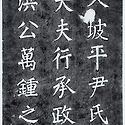 人坡平尹氏
大夫行承政
洪公萬鍾之